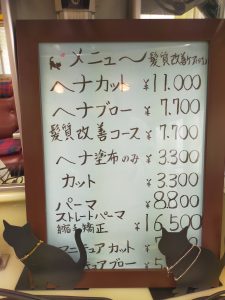 メニュー 髪質改善
ヘナカット ¥11.000
ヘナブロー ¥7.700
髪質改善コース ¥7.700
ヘナ塗布のみ ¥3.300
カット ¥3.300
パーマ ¥8.800
ストレートパーマ
縮毛矯正 ¥16,500
マニキュア カット
キュアブロー